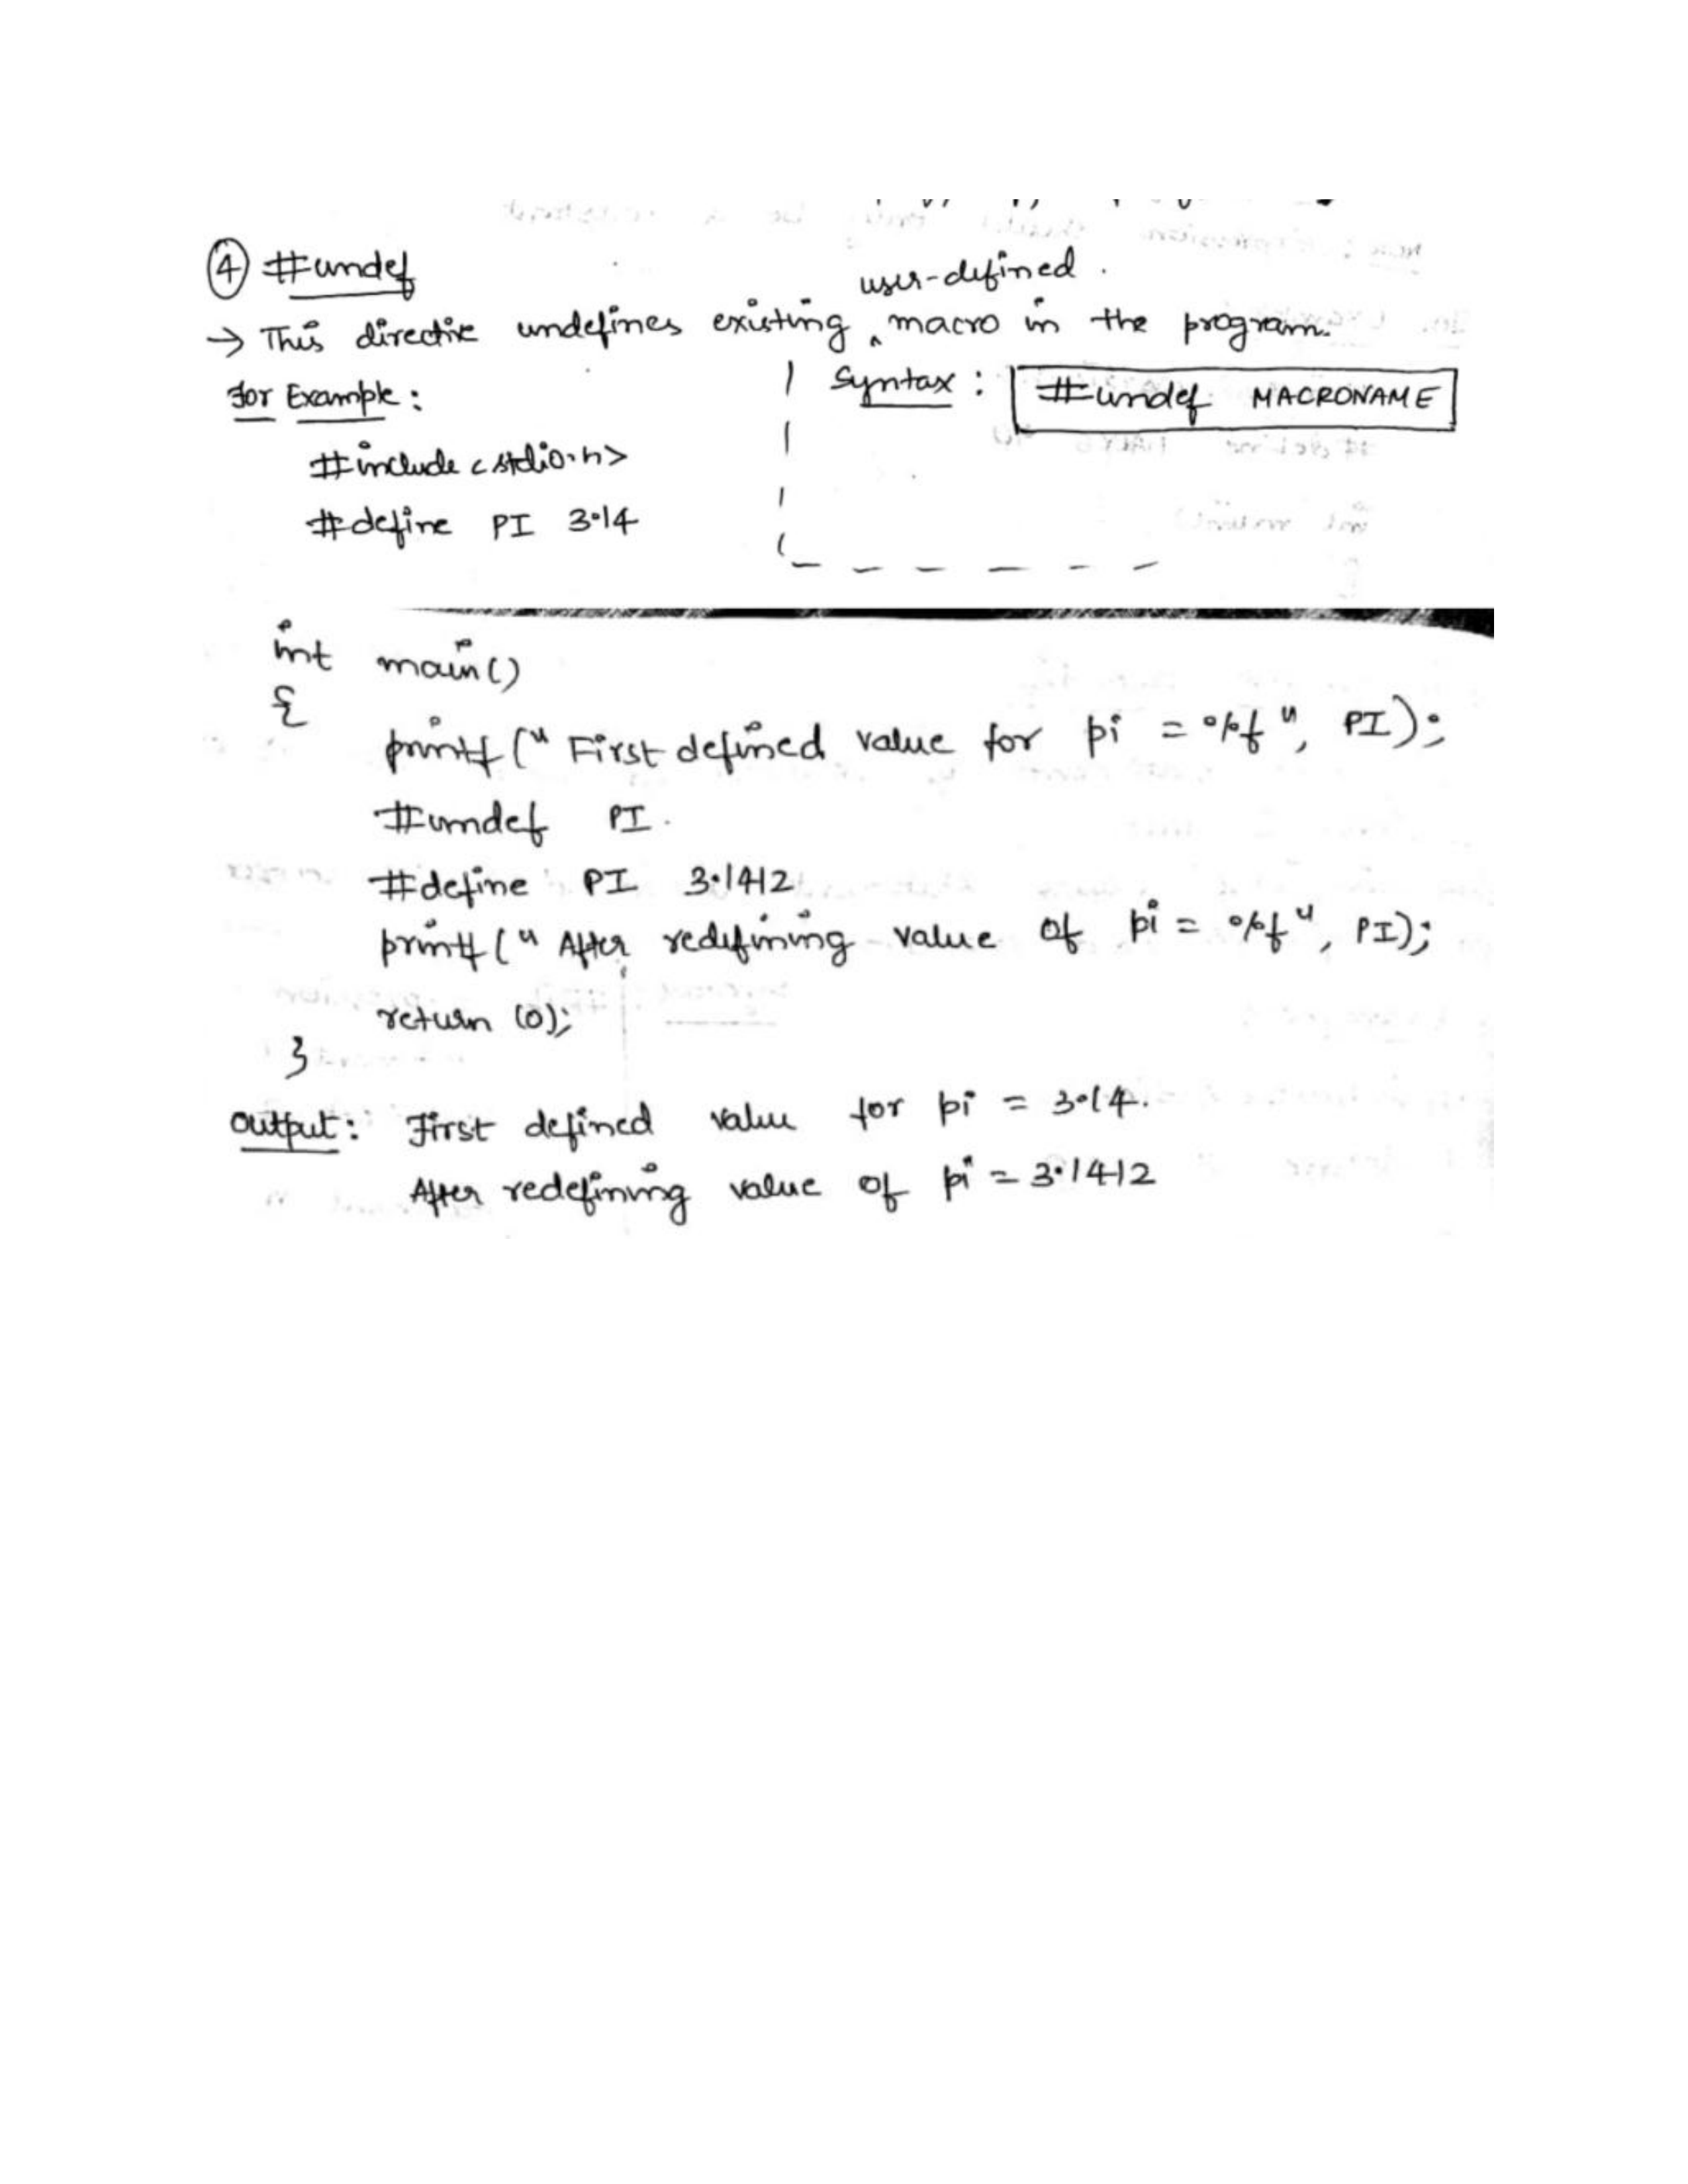 ④ #undef
user-defined.
→ This directive undefines existing ‸ macro in the program.
For Example:
Syntax: #undef MACRONAME
#include <stdio.h>
#define PI 3.14
int main()
{
printf(" First defined value for pi = %f", PI);
#undef PI.
#define PI 3.1412
printf(" After redefining value of pi = %f", PI);
return (0);
}
Output: First defined value for pi = 3.14.
After redefining value of pi = 3.1412